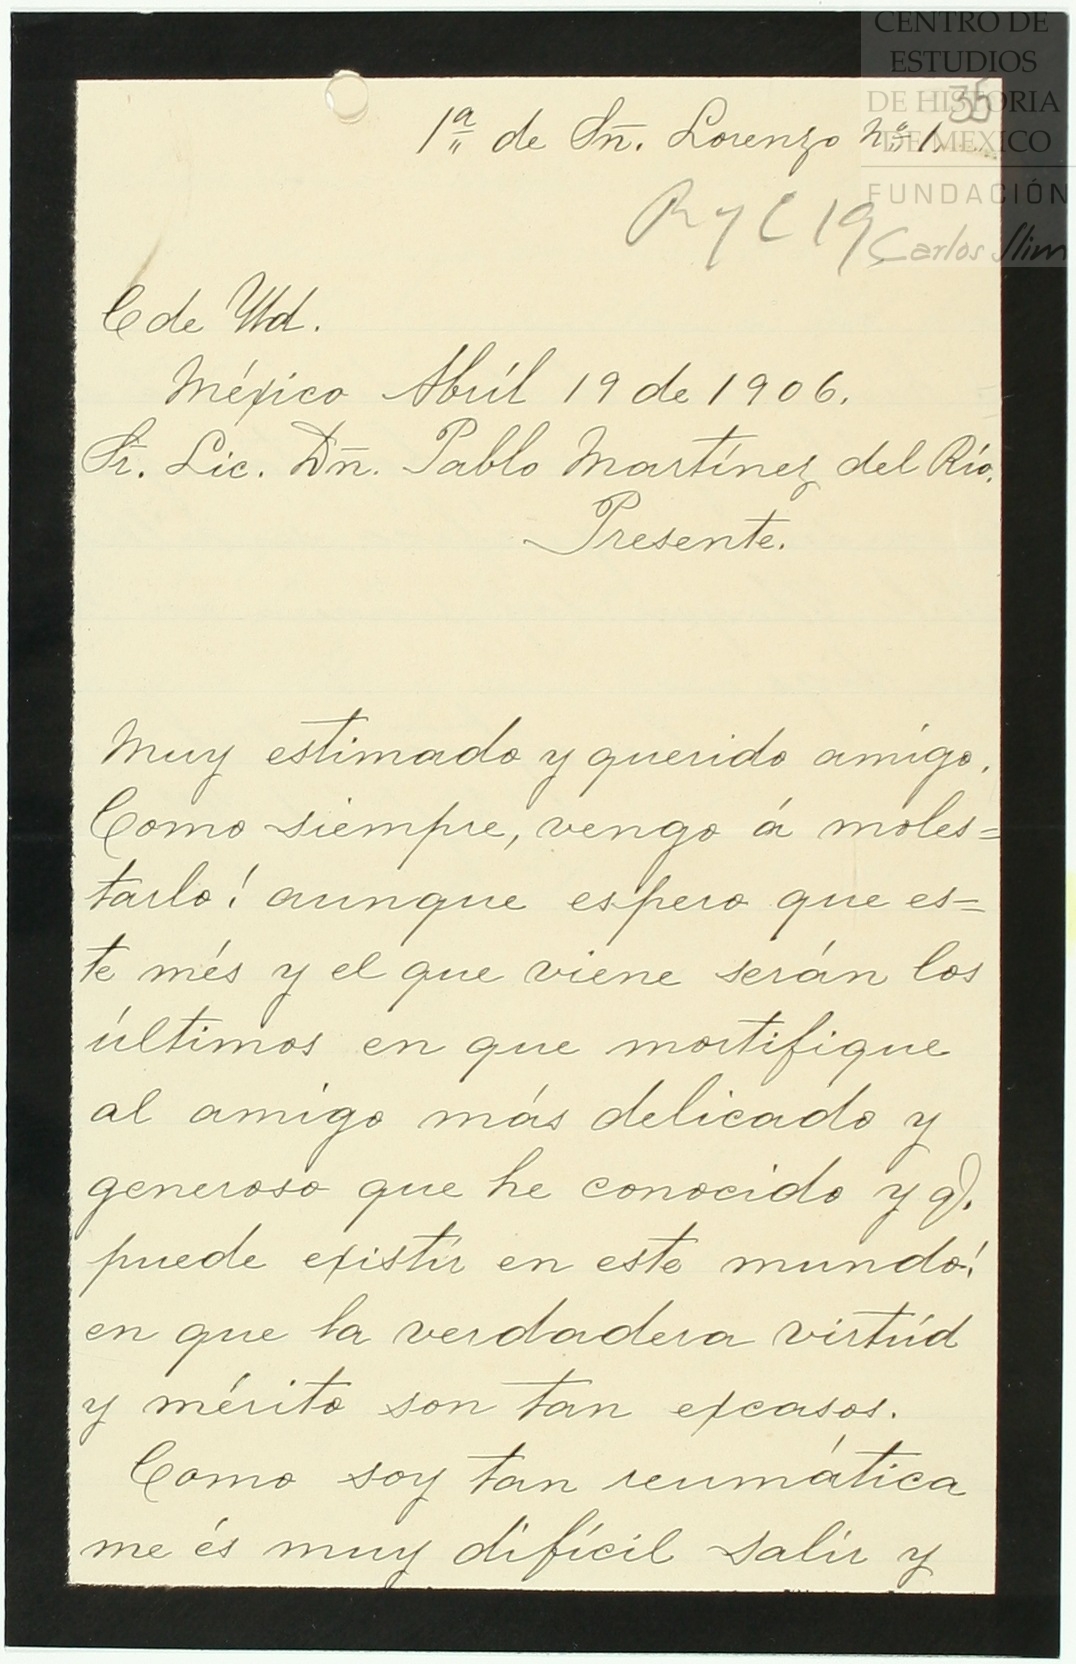 CENTRO DE
ESTUDIOS
DE HISTORIA
DE MEXICO
FUNDACIÓN
Carlos Slim
35
1ª de Sn. Lorenzo Nº 1.
R y C 19
C de Ud.
México Abríl 19 de 1906.
Sr. Lic. Dn. Pablo Martínez del Río.
Presente.
Muy estimado y querido amígo.
Como siempre, vengo á moles=
tarlo! aunque espero que es=
te més y el que viene serán los
últimos en que mortifique
al amígo más delicado y
generoso que he conocido y q.
puede existír en este mundo!
en que la verdadera virtúd
y mérito son tan excasos.
Como soy tan reumática
me és muy difícil salir y